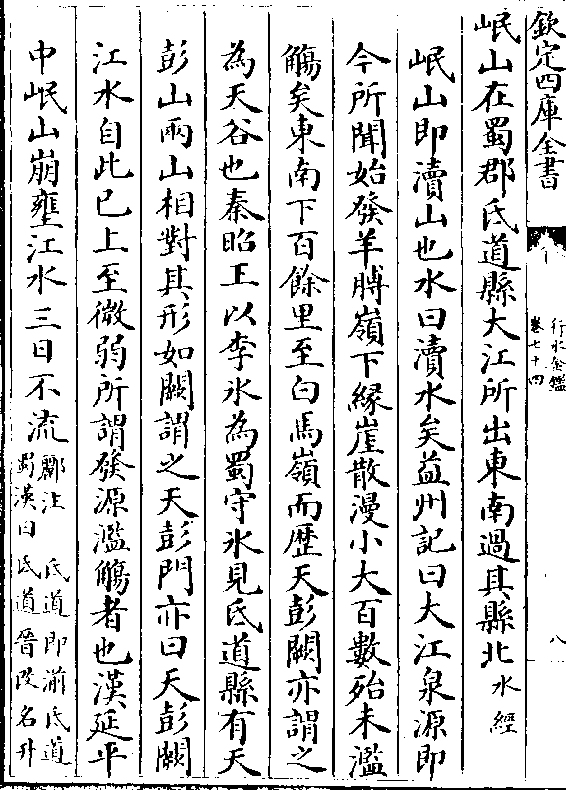 欽定四庫全書
行水金鑑
卷七十四
八
岷山在蜀郡氐道縣大江所出東南過其縣北水經
岷山即瀆山也水曰瀆水矣益州記曰大江泉源即
今所聞始發羊膊嶺下緣崖散漫小大百數殆未濫
觴矣東南下百餘里至白馬嶺而歷天彭闕亦謂之
為天谷也秦昭王以李氷為蜀守氷見氐道縣有天
彭山兩山相對其形如闕謂之天彭門亦曰天彭闕
江水自此已上至微弱所謂發源濫觴者也漢延平
中岷山崩壅江水三日不流酈注 氐道即湔氐道
蜀漢曰氐道晉改名升